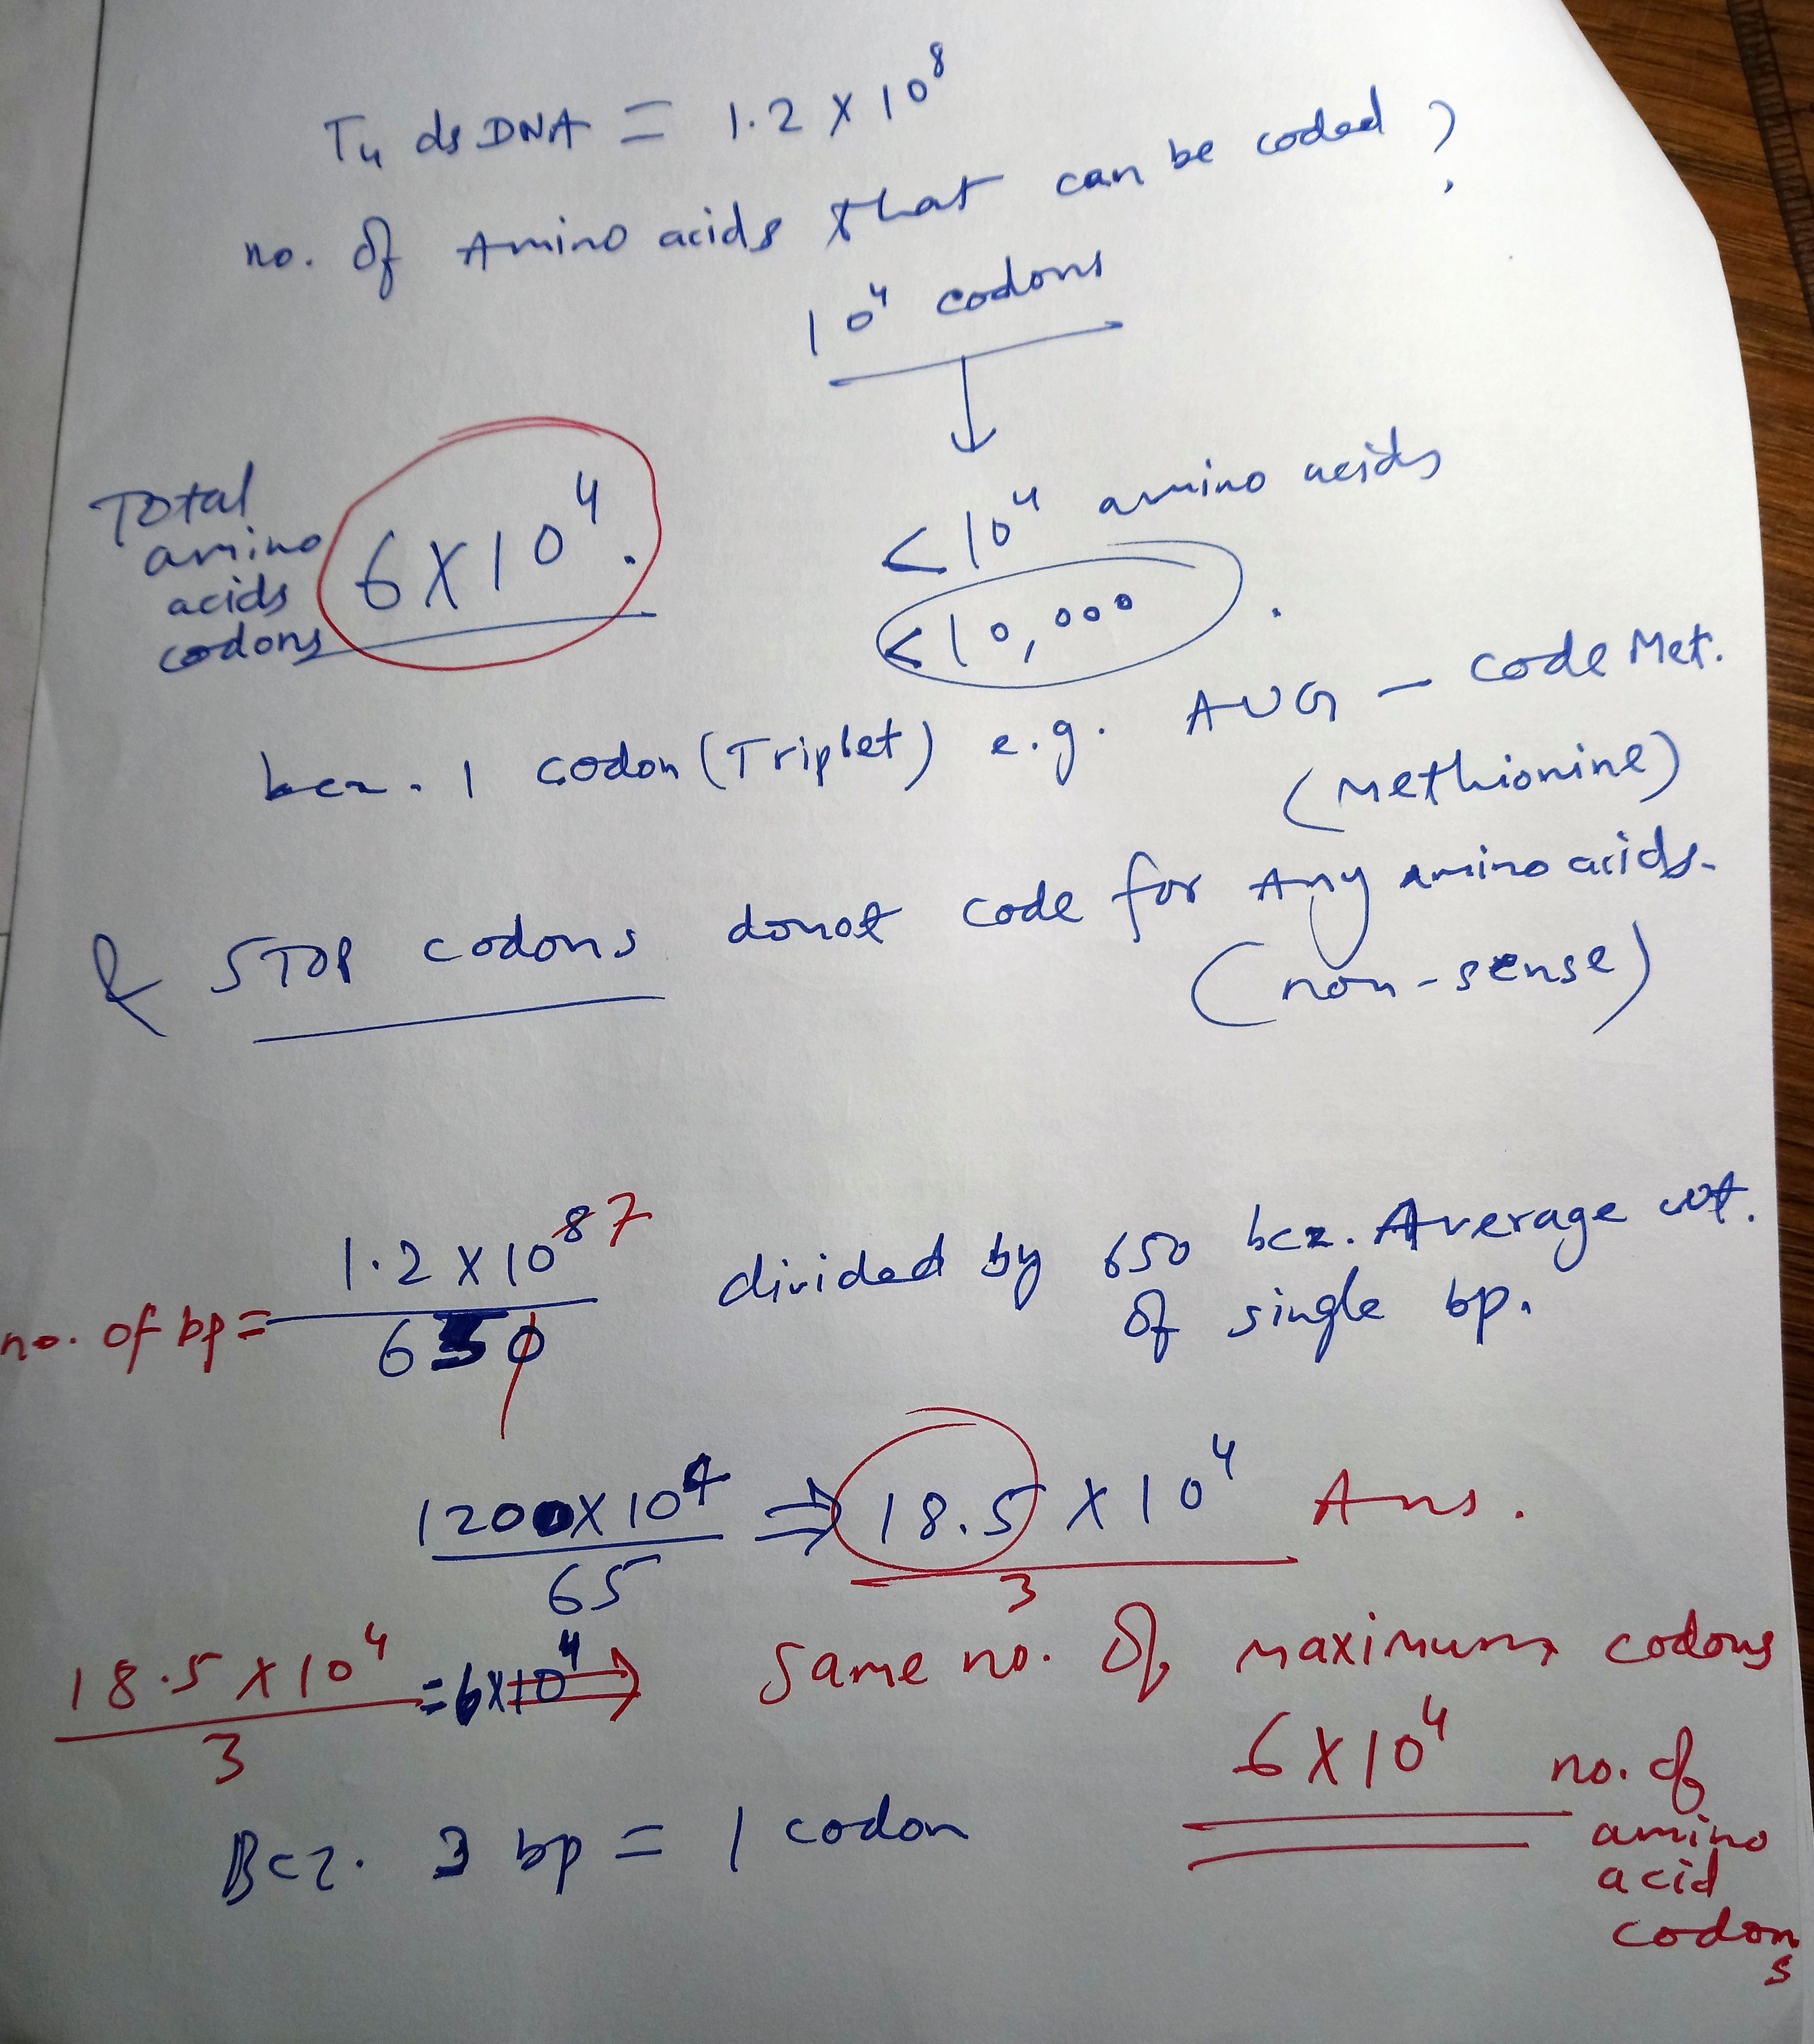 T4 ds DNA = 1.2 X 10^8
no. of Amino acids that can be coded ?
10^4 codons
↓
Total amino acids codons
6X10^4.
<10^4 amino acids
<10,000 .
bcz. 1 codon (Triplet) e.g. AUG - code Met.
(Methionine)
& STOP codons donot code for Any amino acids.
(non-sense)
no. of bp = 1.2 X 10^8 7 / 650
divided by 650 bcz. Average wt.
of single bp.
1200X10^4 / 65 ⇒ 18.5 X 10^4 / 3 Ans.
18.5 X 10^4 / 3 = 6X10^4 ⇒ Same no. of maximum codons
6X10^4 no. of
amino
acid
codons
Bcz. 3 bp = 1 codon